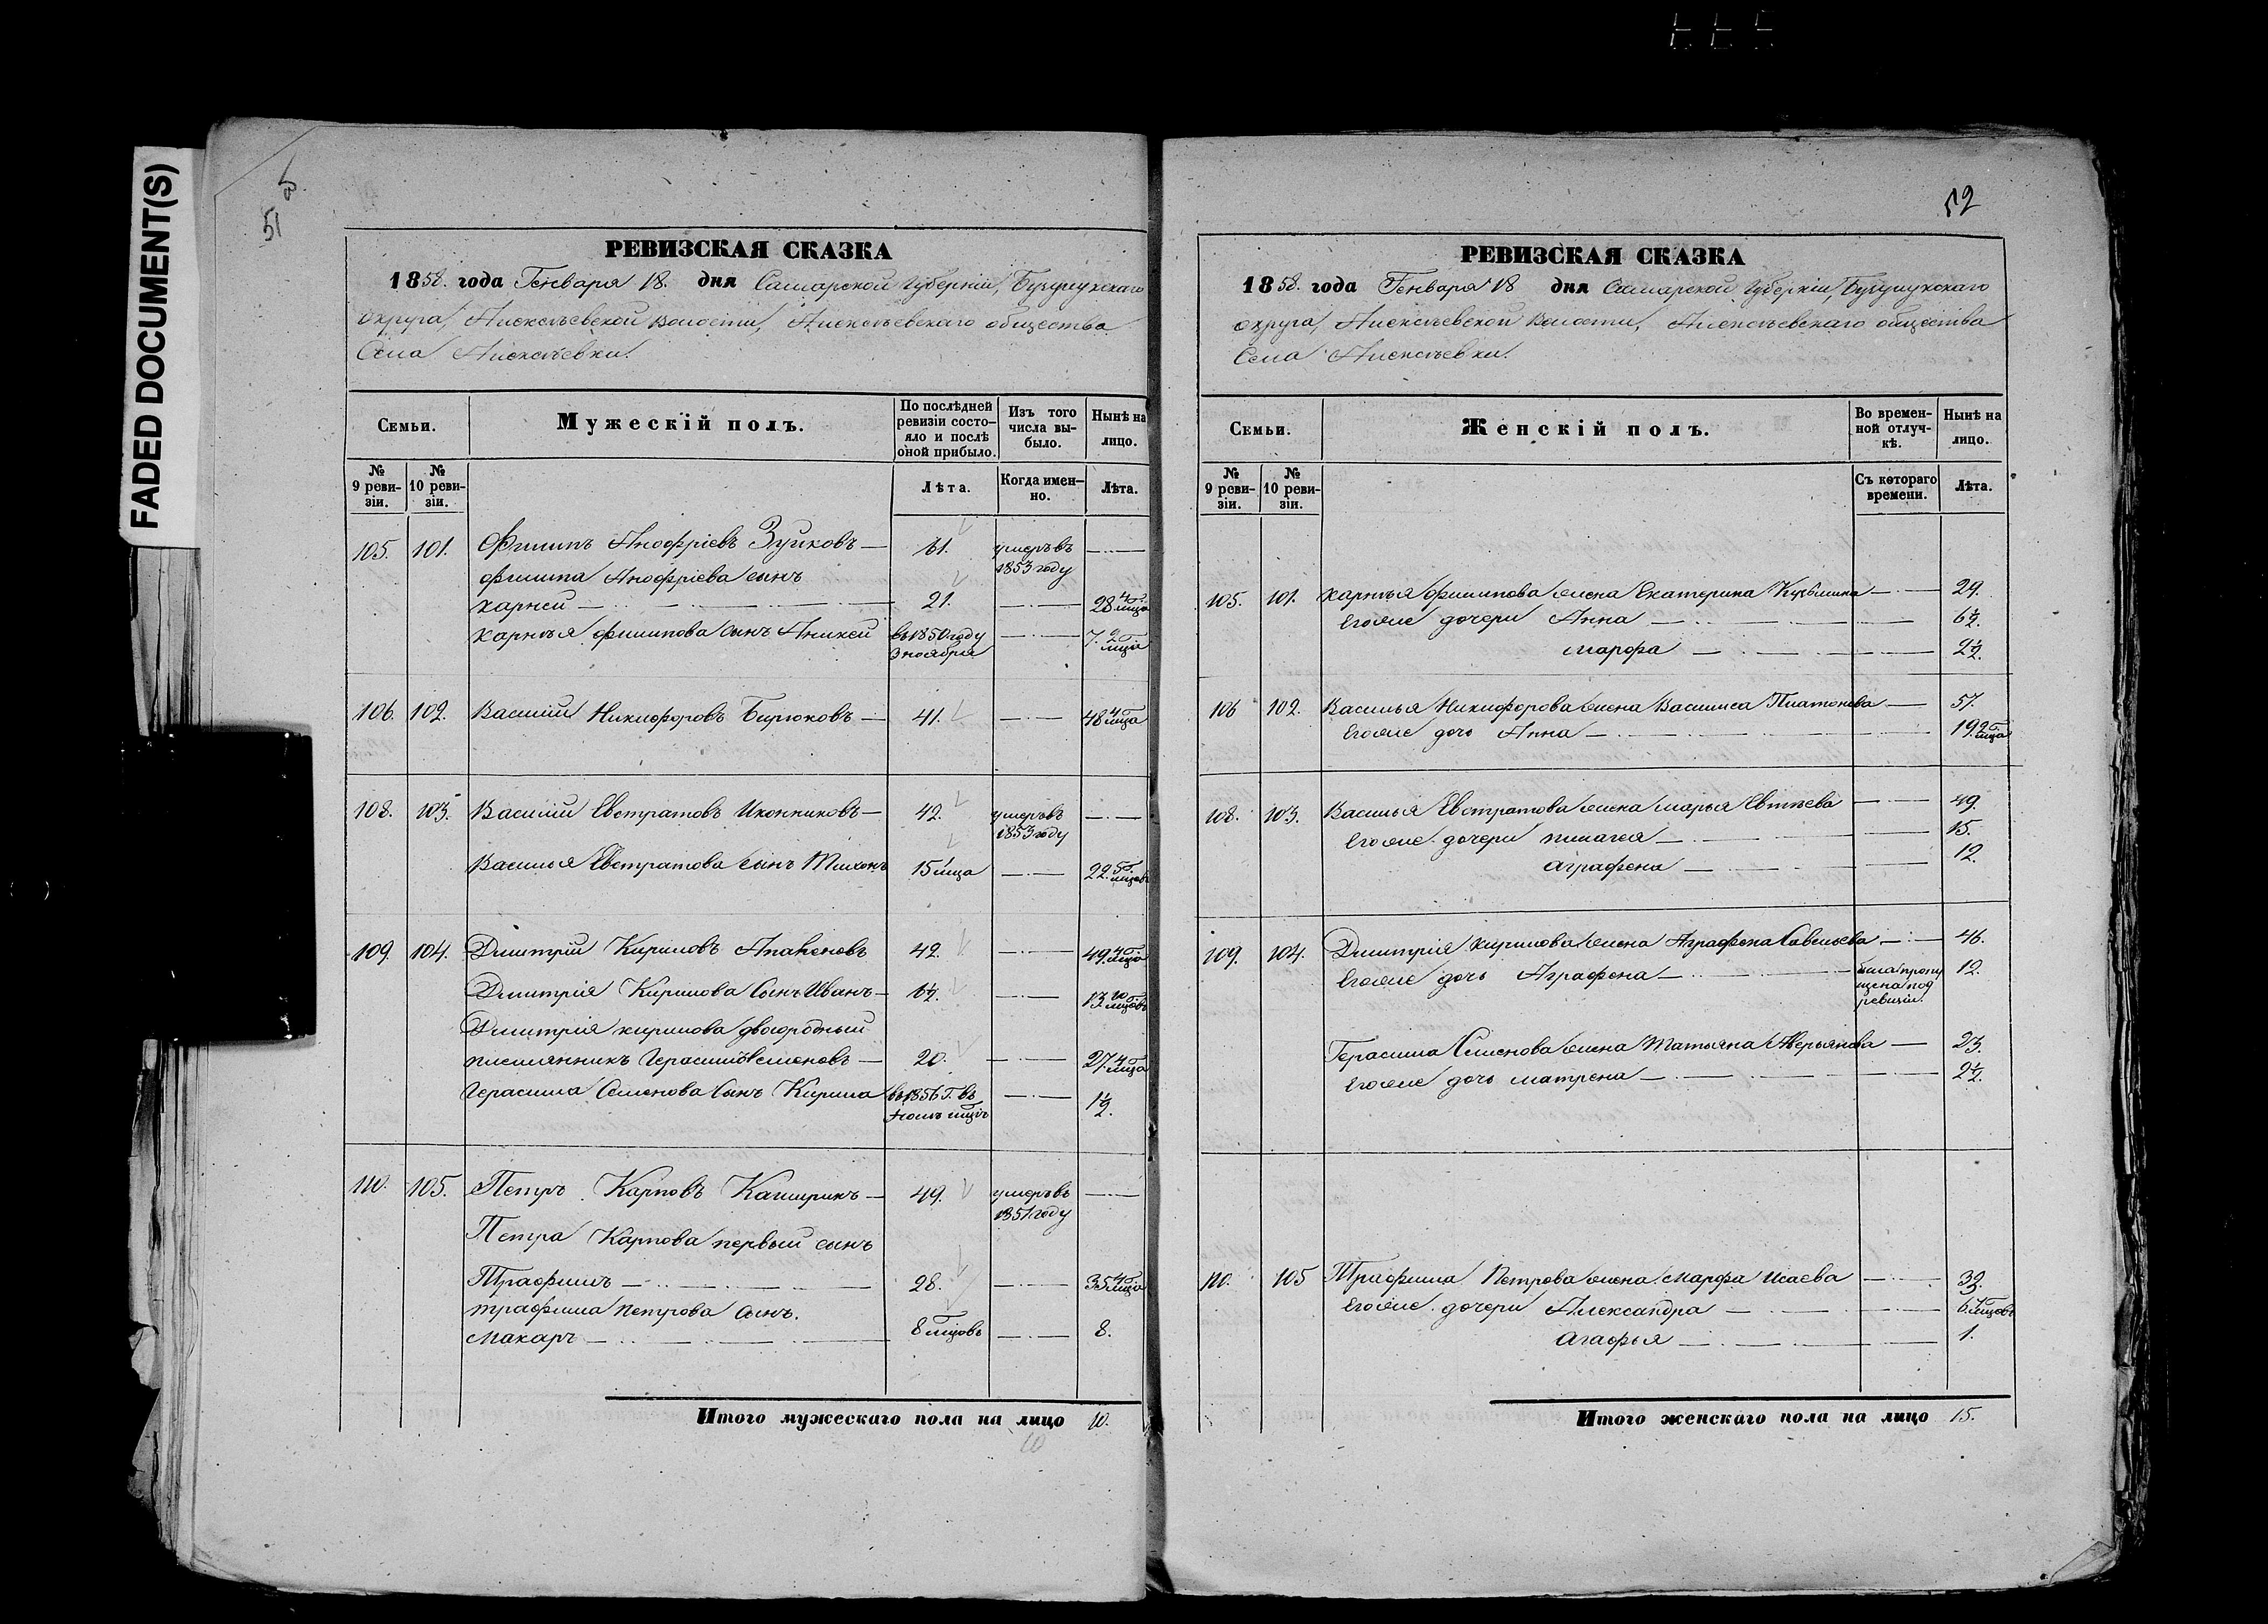 FADED DOCUMENT(S)
51
РЕВИЗСКАЯ СКАЗКА
1858. года Генваря 18. дня Самарской Губерніи, Бузулукскаго
Округа, Алексѣевской Волости, Алексѣевскаго общества
Села Алексѣевки.
Семьи.
Мужескій полъ.
По послѣдней ревизіи состояло и послѣ оной прибыло.
Изъ того числа выбыло.
Нынѣ на лицо.
№ 9 ревизіи.
№ 10 ревизіи.
Лѣта.
Когда именно.
Лѣта.
105. 101. Филипъ Анофріевъ Зуйковъ — 61. умеръ въ 1853 году —
Филипа Анофріева сынъ
Карней — 21. — 28 4 мца
Карнѣя Филипова сынъ Аникей въ 1850 году 3 ноября — 7. 2 мца
106. 102. Василій Никифоровъ Бирюковъ — 41. — 48 4 мца
108. 103. Василій Евстратовъ Иконниковъ — 42. умеръ въ 1853 году —
Василья Евстратова сынъ Тихонъ 15 1 мца — 22. 5 мцовъ
109. 104. Дмитрій Кириловъ 42. — 49. 4 мца
Дмитрія Кирилова Сынъ Иванъ — 6½. — 13. 10 мцовъ
Дмитрія Кирилова двоюродный
племянникъ Герасимъ Семеновъ — 20. — 27. 4 мца
Герасима Семенова Сынъ Кирила въ 1856 г. въ мцѣ — 1½.
110. 105. Петръ Карповъ Каширинъ — 49. умеръ въ 1851 году —
Петра Карпова первый сынъ
Трафимъ — 28. — 35 4 мца
Трафима Петрова Сынъ.
Макаръ — 8 мцовъ — 8.
Итого мужескаго пола на лицо 10.
10
52
РЕВИЗСКАЯ СКАЗКА
1858. года Генваря 18 дня Самарской Губерніи, Бузулукскаго
Округа, Алексѣевской Волости, Алексѣевскаго общества
Села Алексѣевки.
Семьи.
Женскій полъ.
Во временной отлучкѣ.
Нынѣ на лицо.
№ 9 ревизіи.
№ 10 ревизіи.
Съ котораго времени.
Лѣта.
105. 101. Карнѣя Филипова жена Екатерина Кузьмина — 29.
Его же дочери Анна — 6½.
Марфа — 2½.
106 102. Василья Никифорова жена Василиса Платонова — 57.
Его же дочь Анна — 19. 2 мца
108. 103. Василья Евстратова жена Марья Евтѣева — 49.
Его же дочери Пилагея — 15.
Аграфена — 12.
109. 104. Дмитрія Кирилова жена Аграфена Савельева — 46.
Его же дочь Аграфена — была пропущена под ревизіи. 12.
Герасима Семенова жена Татьяна Аверьянова — 23.
Его же дочь Матрена — 2½.
110. 105 Трафима Петрова жена Марфа Исаева — 32.
Его же дочери Александра — 6. мцовъ
Агафья — 1.
Итого женскаго пола на лицо 15.